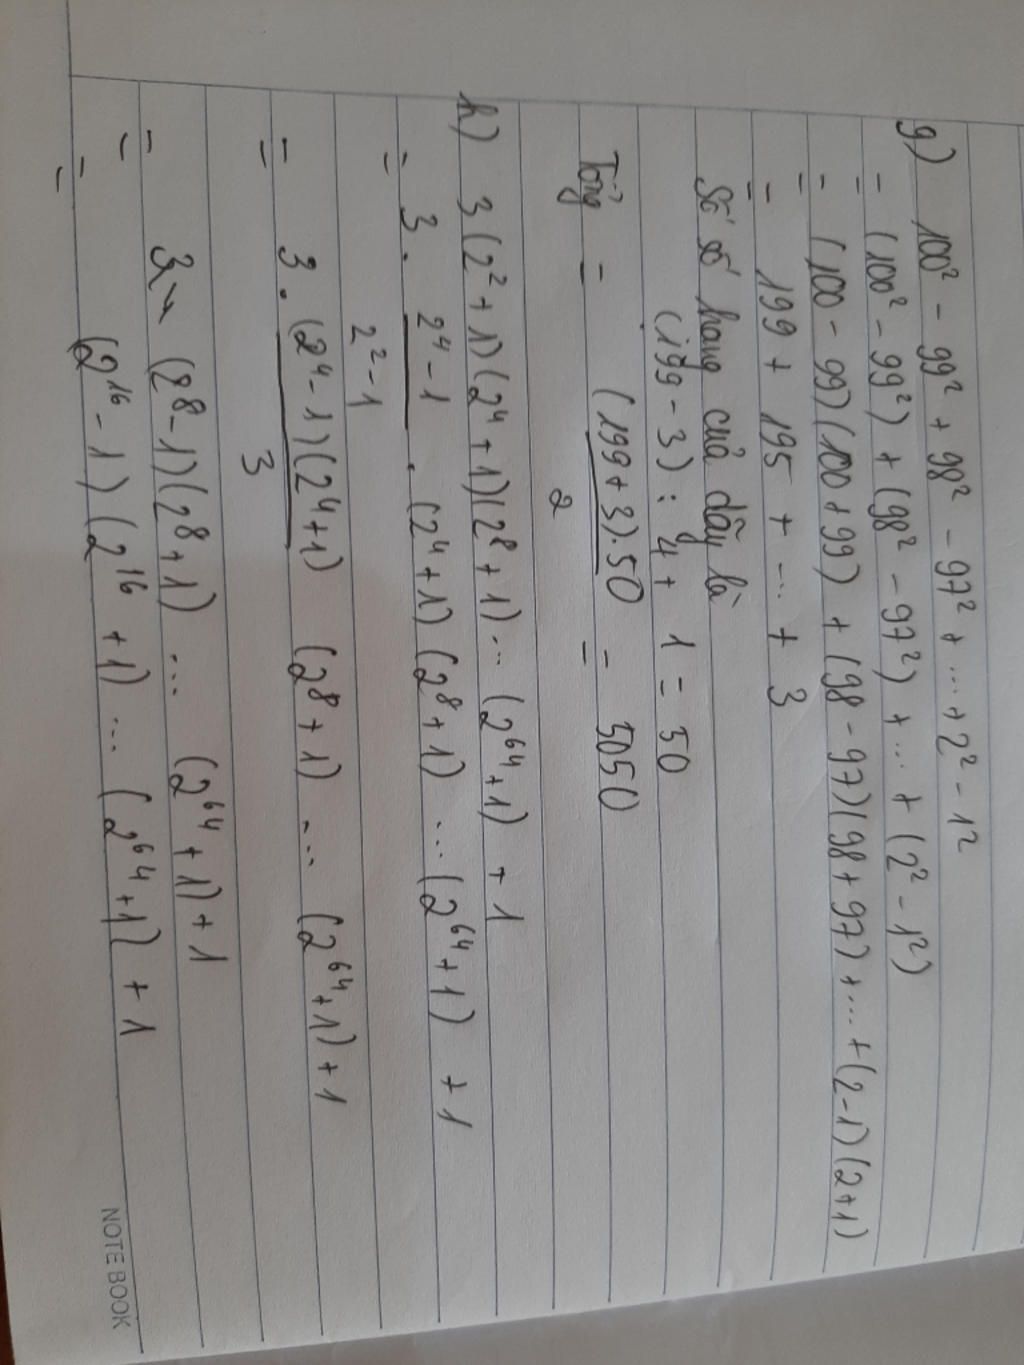 g) 100² - 99² + 98² - 97² + ... + 2² - 1²
= (100² - 99²) + (98² - 97²) + ... + (2² - 1²)
= (100 - 99)(100 + 99) + (98 - 97)(98 + 97) + ... + (2 - 1)(2 + 1)
= 199 + 195 + ... + 3
Số số hạng của dãy là
(199 - 3) : 4 + 1 = 50
Tổng = (199 + 3).50 / 2 = 5050
h) 3(2² + 1)(2⁴ + 1)(2⁸ + 1) ... (2⁶⁴ + 1) + 1
= 3 . (2⁴ - 1) / (2² - 1) . (2⁴ + 1)(2⁸ + 1) ... (2⁶⁴ + 1) + 1
= 3 . (2⁴ - 1)(2⁴ + 1) / 3 (2⁸ + 1) ... (2⁶⁴ + 1) + 1
= (2⁸ - 1)(2⁸ + 1) ... (2⁶⁴ + 1) + 1
= (2¹⁶ - 1)(2¹⁶ + 1) ... (2⁶⁴ + 1) + 1
=
NOTE BOOK